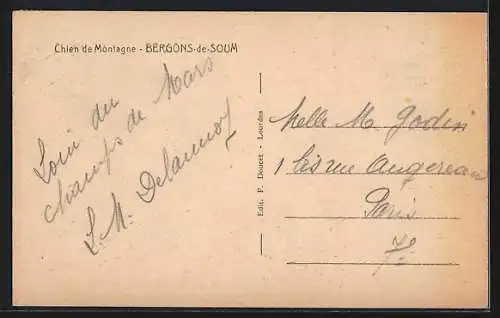 Chien de Montagne - BERGONS-de-SOUM
Loin du
champs de Mars
L. M. Delaunoy
Edit. P. Doucet - Lourdes
Melle M Godin
1 bis rue Augereau
Paris
7e